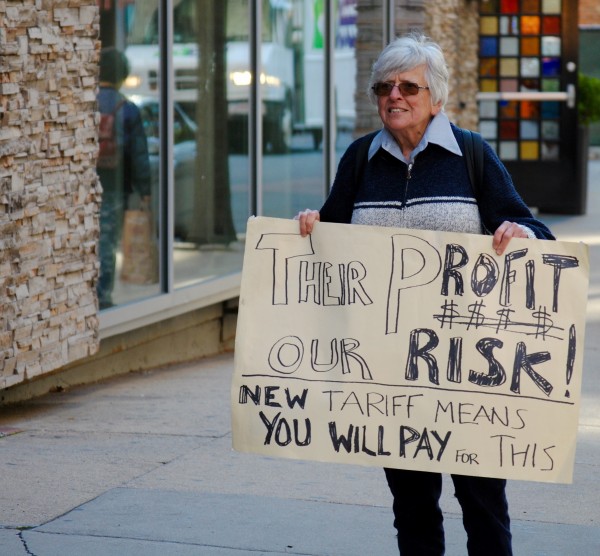 THEIR PROFIT
$$$$
OUR RISK!
NEW TARIFF MEANS
YOU WILL PAY FOR THIS